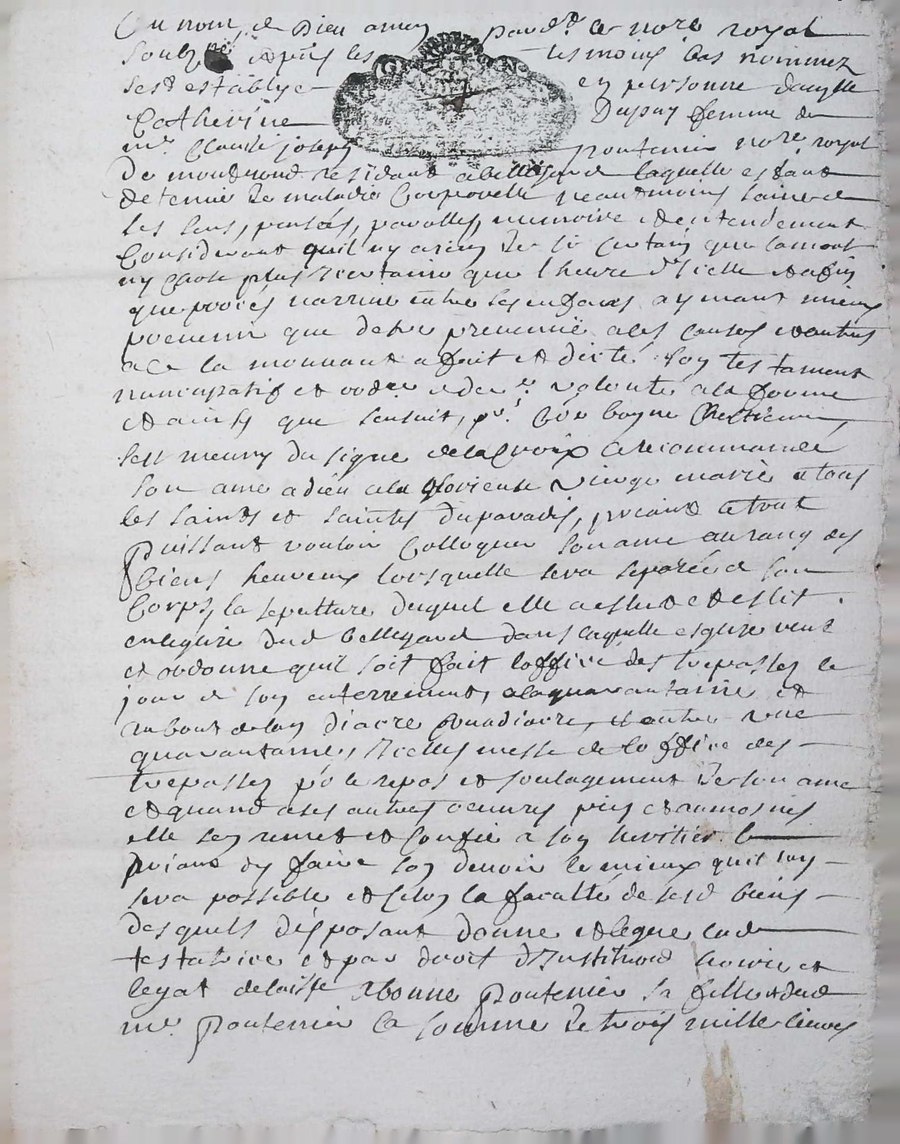 Au nom de Dieu amen pard.t le nore royal
soubz.né et pns les tesmoins bas nommez
sest establye en personne dam.lle
Catherine Dupuy femme de
m.e Claude joseph pontenier nore royal
de moudrond residant a bellegarde laquelle estant
detenue de maladie Corporelle neantmoins saine de
ses sens, pensées, parolles, memoire et de entendement
Considerant quil ny a rien de si certain que la mort
ny chose plus incertaine que lheure dicelle et afin
que proces narrive entre ses enfans, aymant mieux
prevenir que detre prevenue a ces causes et autres
a ce la mouvant a fait et dicté son testament
nuncupatif et ord.re et der.e volonté a la forme
et ainsy que sensuit, p.r Co.e bonne Chretienne
sest munie du signe de la Croix a recommandé
son ame a dieu a la glorieuse vierge marie a tous
les saints et saintes du paradis, priant le tout
puissant vouloir Colloquer son ame au rang des
biens heureux lorsquelle sera separée de son
Corps, la sepulture duquel elle a eslut et eslit
en leglise dud bellegarde dans laquelle esglise veut
et ordonne quil soit fait loffice des trepasses le
jour de son enterrement, a la quarantaine et
au bout de lan diacre soudiacre, et outre une
quarantaine, dicelles messe de loffice des
trepasses p.r le repos et soulagement de son ame
et quand a ses autres oeuvres pies et aumosnes
elle sen remet et confie a son heritier le
priant den faire son devoir le mieux quil luy
sera possible et selon la faculté de sesd biens
desquels disposant donne et legue lad
testatrice et par droit dinstitution hoirie et
legat delaisse a bonne pontenier sa fille et dud
m.e pontenier la somme de trois mille livres